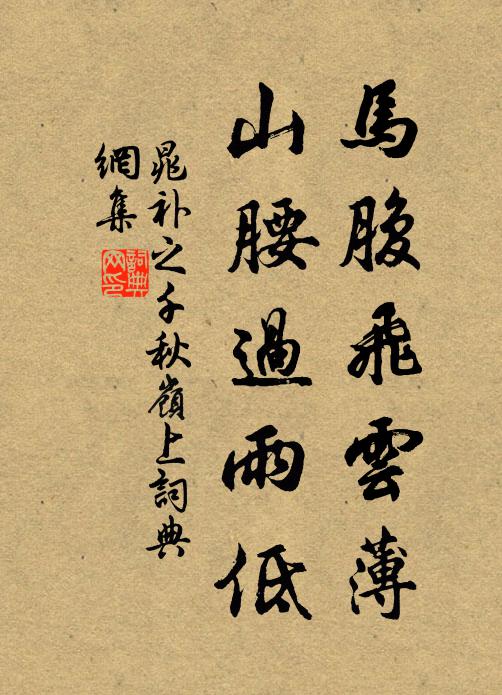 馬腹飛雲薄
山腰過雨低
晁補之千秋嶺上詞典
網集
詞典
网印